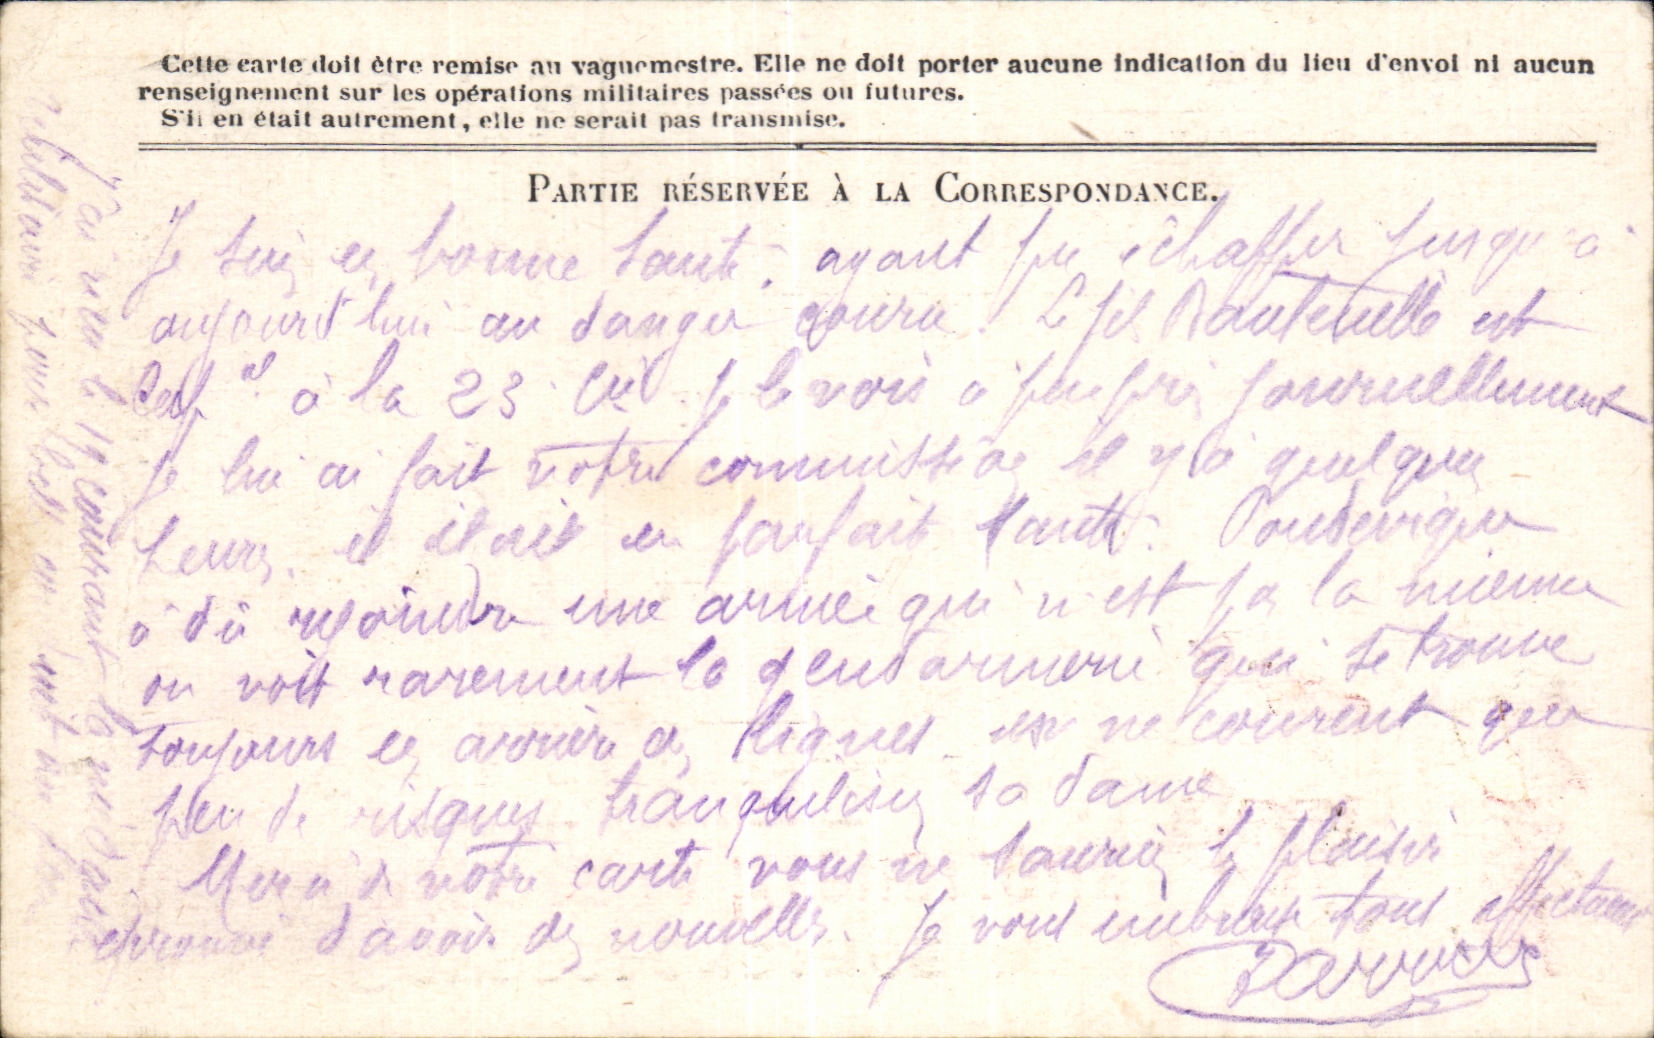 Cette carte doit être remise au vaguemestre. Elle ne doit porter aucune indication du lieu d'envoi ni aucun
renseignement sur les opérations militaires passées ou futures.
S'il en était autrement, elle ne serait pas transmise.
PARTIE RÉSERVÉE À LA CORRESPONDANCE.
Je suis en bonne santé, ayant pu échapper jusqu'à
aujourd'hui au danger couru. Le fils est
à la 23 Cie. Je le vois à peu près journellement
Je lui ai fait votre commission il y a quelques
heures. il était en parfaite santé.
a dû rejoindre une armée qui n'est pas la mienne
on voit rarement la gendarmerie qui se trouve
toujours en arrière des lignes ne courent que
peu de risques tranquilisez sa dame
Merci de votre carte vous ne sauriez le plaisir
éprouvé d'avoir des nouvelles. Je vous embrasse tous affectueu
J'ai reçu le 19 courant la
militaire pour